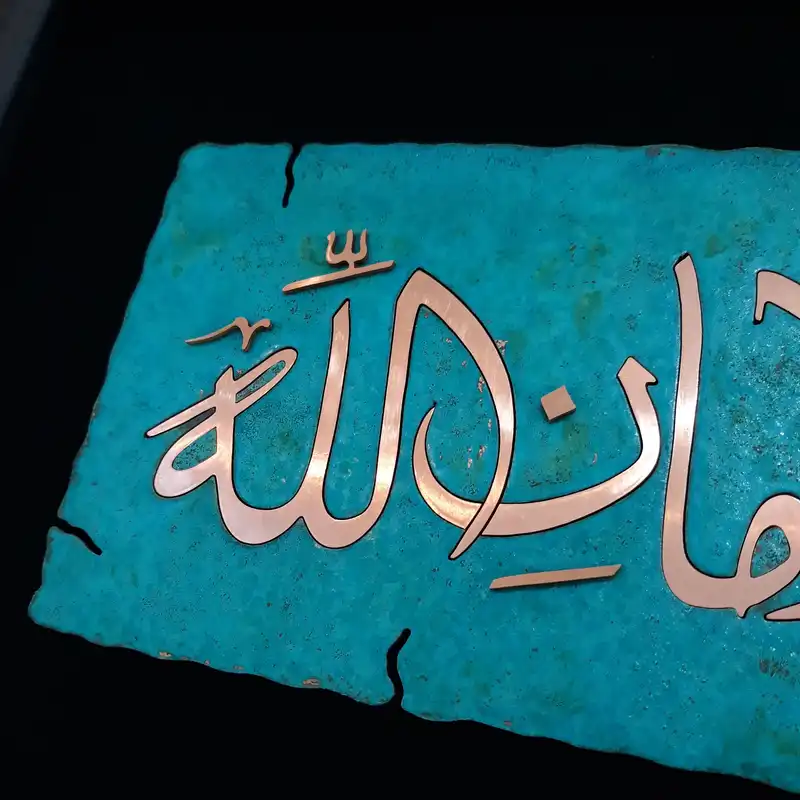 مانِ اللَّه